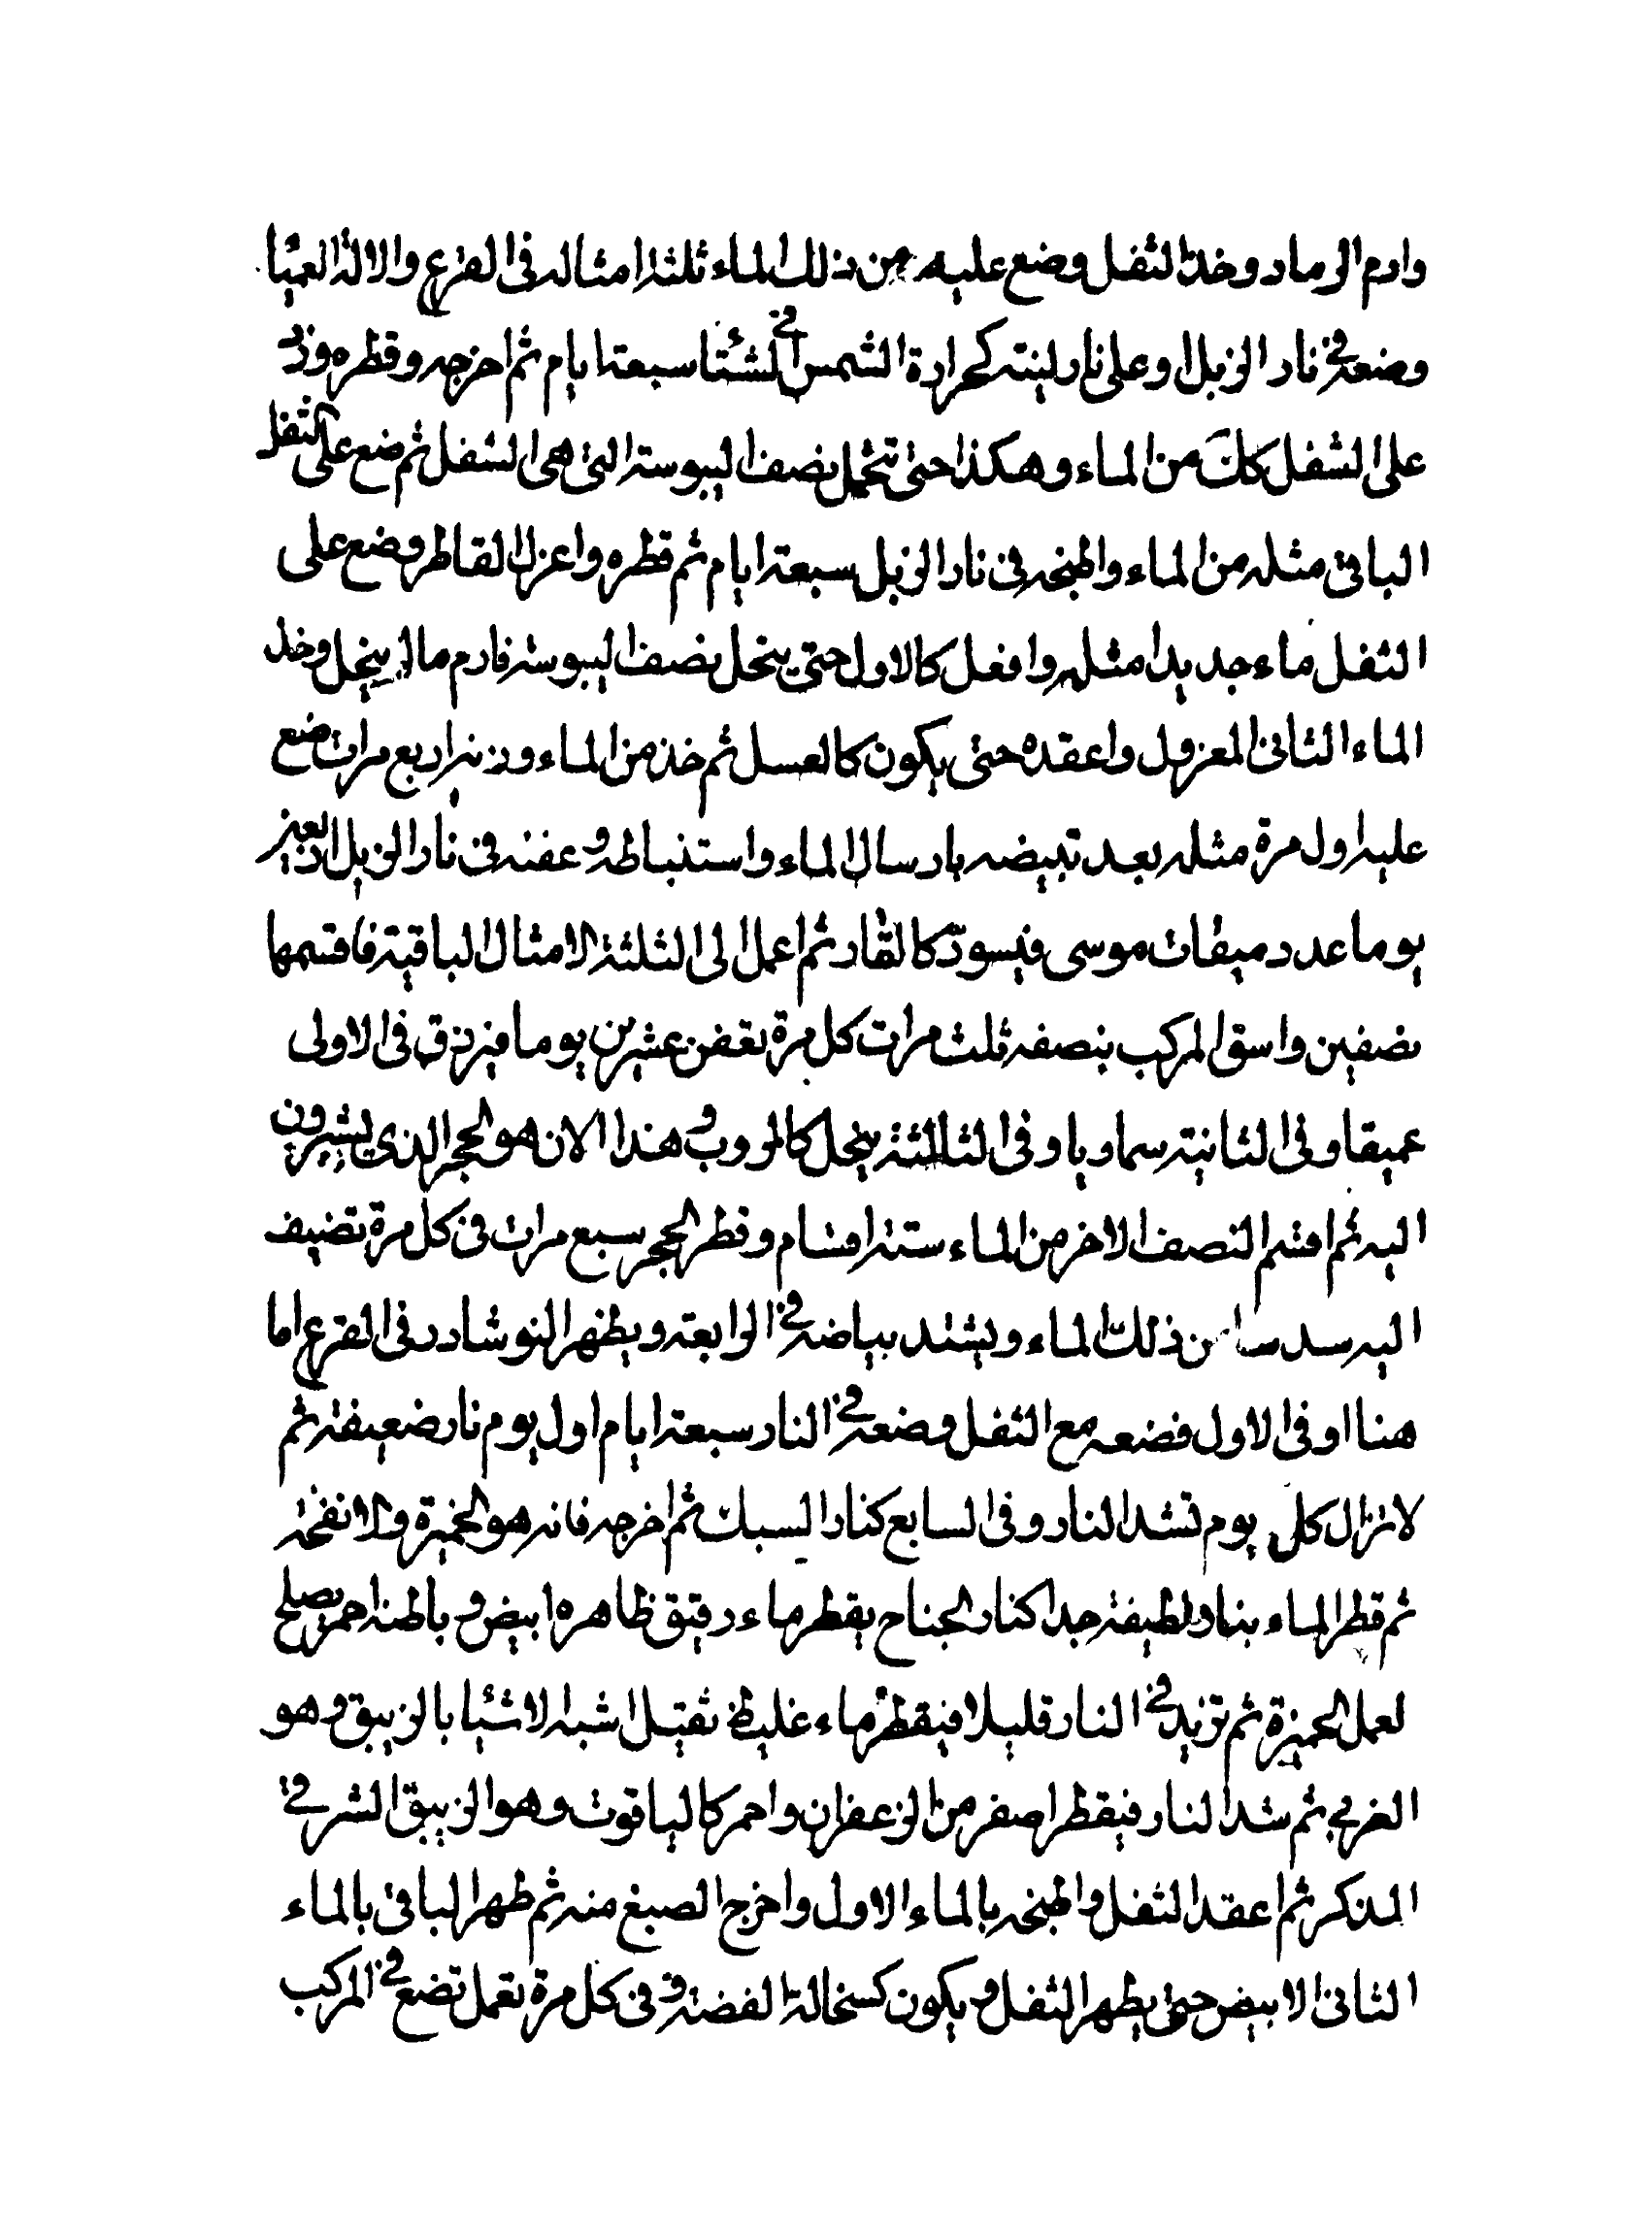 وارم الرماد وخذ الثفل وضع عليه من ذلك الماء ثلثة امثاله في القرع والالة العميا
وضعه في نار الزبل او على نار لينة كحرارة الشمس في الشتا سبعة ايام ثم اخرجه وقطره ورد
على الثفل كك من الماء وهكذا حتى تنحل نصف اليبوسة التي هي الثفل ثم ضع على الثفل
الباقي مثله من الماء واطبخه في نار الزبل سبعة ايام ثم قطره واعزل القاطر وضع على
الثفل ماء جديدا مثله وافعل كالاول حتى ينحل نصف اليبوسة فارم ما لم ينحل وخذ
الماء الثاني المعزول واعقده حتى يكون كالعسل ثم خذ من الماء وزنه اربع مرات ضع
عليه اول مرة مثله بعد تبيضه بارسال الماء واستنباطه وعفنه في نار الزبل اربعين
يوما عدد ميقات موسى فيسود كالقار ثم اعمل الى الثلثة الامثال الباقية فاقسمها
نصفين واسق المركب بنصفه ثلث مرات كل مرة تعفن عشرين يوما فيزرق في الاولى
عميقا وفي الثانية سماويا وفي الثالثة ينحل كالروب وهذا الان هو الحجر الذي يشيرون
اليه ثم اقسم النصف الاخر من الماء ستة اقسام وقطر الحجر سبع مرات في كل مرة تضيف
اليه سدسا من ذلك الماء ويشتد بياضه في الرابعة ويظهر النوشادر في القرع اما
هنا او في الاول فضعه مع الثفل وضعه في النار سبعة ايام اول يوم نار ضعيفة ثم
لا تزال كل يوم تشد النار وفي السابع كنار السبك ثم اخرجه فانه هو الخميرة والانفحة
ثم قطر الماء بنار لطيفة جدا كنار الجناح يقطر ماء رقيق ظاهره ابيض وباطنه احمر يصلح
لعمل الخميرة ثم تزيد في النار قليلا فيقطر ماء غليظ ثقيل اشبه الاشيا بالزيبق وهو
الغربي ثم شد النار فيقطر اصفر من الزعفران واحمر كالياقوت وهو الزيبق الشرقي
المذكر ثم اعقد الثفل واطبخه بالماء الاول واخرج الصبغ منه ثم طهر الباقي بالماء
الثاني الابيض حتى يطهر الثفل ويكون كسخالة الفضة وفي كل مرة تعمل تضع في المركب